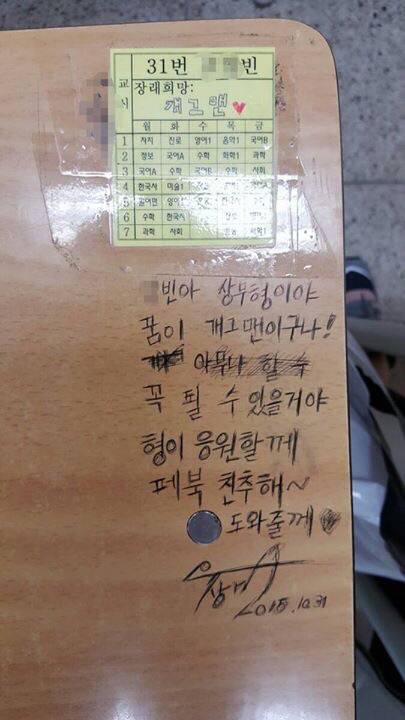 31번 빈
교시
장래희망:
개그맨 ♥
월 화 수 목 금
1 자치 진로 영어1 음악1 국어B
2 정보 국어A 수학 화학1 과학
3 국어A 수학 국어B 수학 사회
4 한국사 미술1
5
6 수학 한국사
7 과학 사회
빈아 상무형이야
꿈이 개그맨이구나!
아무나 할 수
꼭 될 수 있을거야
형이 응원할께
페북 친추해~
도와줄께
2015.10.31